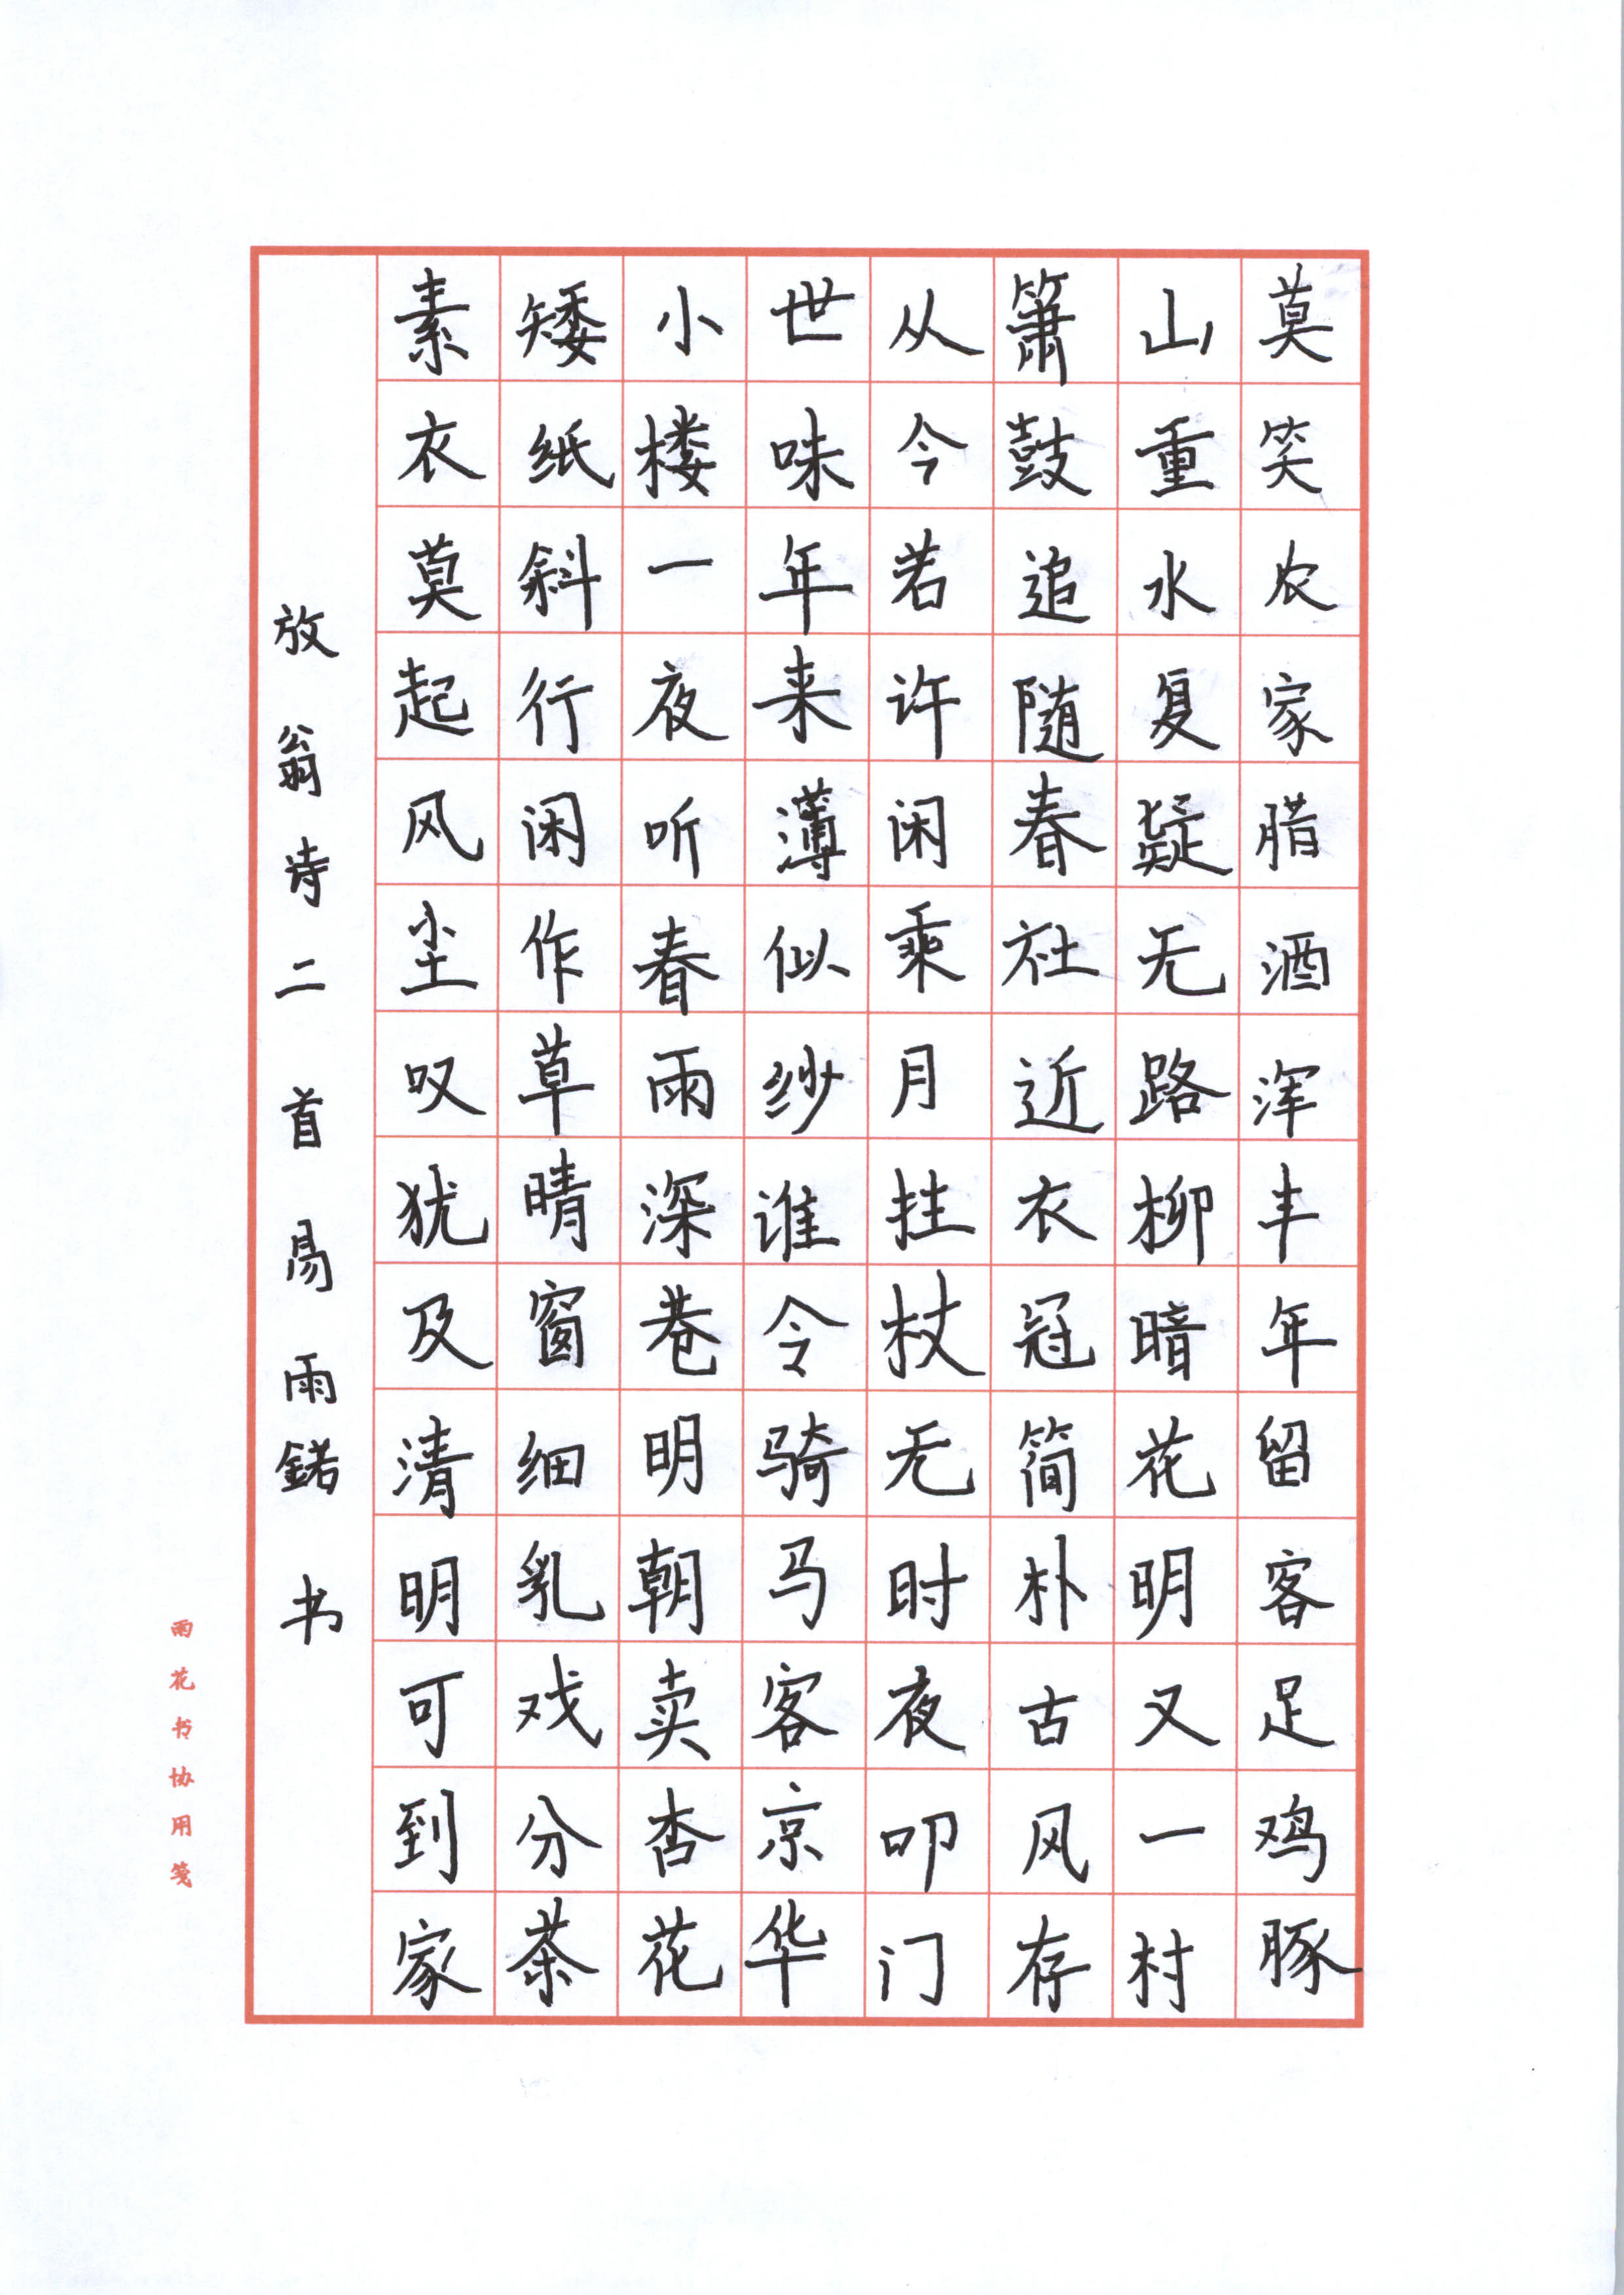 莫笑农家腊酒浑丰年留客足鸡豚
山重水复疑无路柳暗花明又一村
箫鼓追随春社近衣冠简朴古风存
从今若许闲乘月拄杖无时夜叩门
世味年来薄似纱谁令骑马客京华
小楼一夜听春雨深巷明朝卖杏花
矮纸斜行闲作草晴窗细乳戏分茶
素衣莫起风尘叹犹及清明可到家
放翁诗二首易雨鍩书
雨花书协用笺